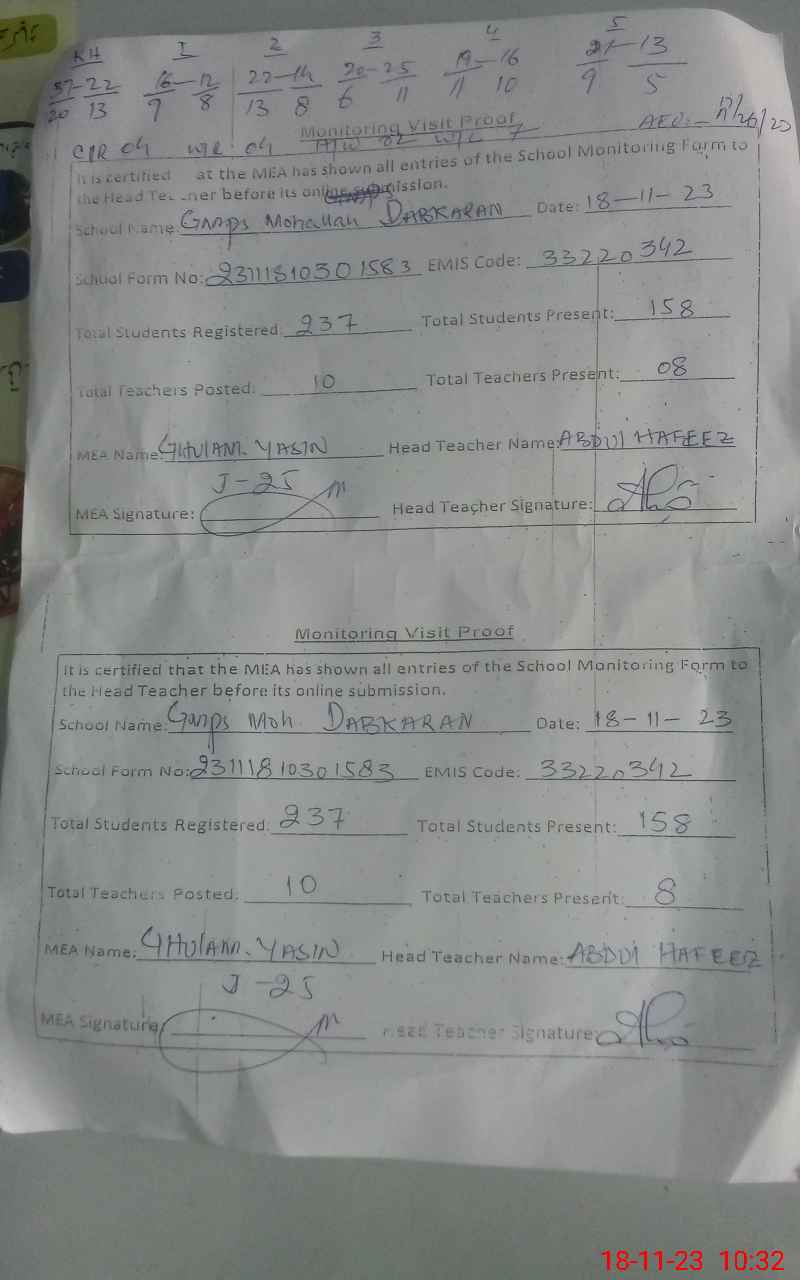 KH 1 2 3 4 5
37-22 16-12 22-14 20-25 19-16 21-13
20 13 9 8 13 8 6 11 11 10 9 5
Monitoring Visit Proof
It is certified at the MEA has shown all entries of the School Monitoring Form to
the Head Te ner before its online submission.
School Name: GMPS Mohallah DABKARAN Date: 18-11-23
School Form No: 2311181030 1583 EMIS Code: 33220342
Total Students Registered: 237 Total Students Present: 158
Total Teachers Posted: 10 Total Teachers Present: 08
MEA Name: GHULAM YASIN Head Teacher Name: ABDUl HAFEEZ
J-25
MEA Signature: Head Teacher Signature:
Monitoring Visit Proof
It is certified that the MEA has shown all entries of the School Monitoring Form to
the Head Teacher before its online submission.
School Name: GMPS Moh. DABKARAN Date: 18-11-23
School Form No: 23111810301583 EMIS Code: 33220342
Total Students Registered: 237 Total Students Present: 158
Total Teachers Posted: 10 Total Teachers Present: 8
MEA Name: GHUlAM. YASIN Head Teacher Name: ABDUl HAFEEZ
J-25
MEA Signature Head Teacher Signature:
18-11-23 10:32